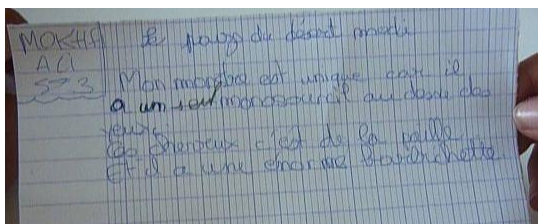 MOKHA
ALI
573
le pays du désert
Mon monstre est unique car il
a un seul monosourcil au dessu des
yeux
Ces cheveux c'est de la paille
Et il a une énorme barbichette